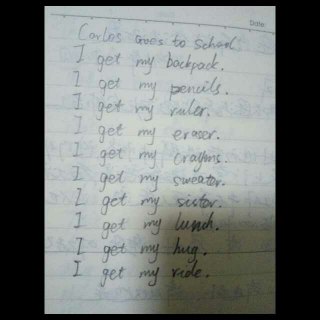 Date
Carlos Goes to school
I get my backpack.
I get my pencils.
I get my ruler.
I get my eraser.
I get my crayons.
I get my sweator.
I get my sistor.
I get my lunch.
I get my hug.
I get my ride.